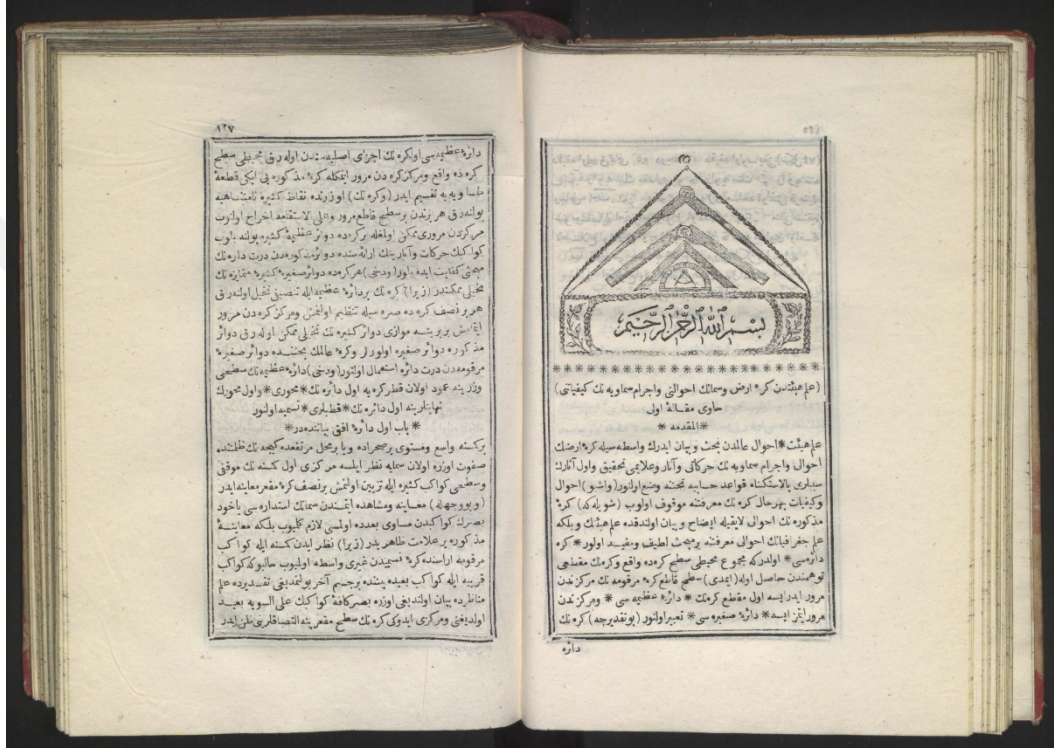 بسم الله الرحمن الرحيم
(علم هیئتدن كرهٔ ارض وسمانك احوالنی واجرام سماویه نك كیفیاتی)
حاوی مقالهٔ اولی
*المقدمه*
علم هیئت * احوال عالمدن بحث وبیان ایدرك واسطه سیله كرهٔ ارضك
احوالی واجرام سماویه نك حركاتی وآثار وعلایمی تحقیق واول آثارك
سیاری بالاستكناه قواعد حسابیه تحتنه وضع اولنور (واشو) احوال
وكیفیات بهرحال كره نك معرفتنه موقوف اولوب (شویله كه) كرهٔ
مذكوره نك احوالی لایقیله ایضاح وبیان اولندقده علم هیئتك وبلكه
علم جغرافیانك احوالی معرفتنه بر مبحث لطیف ومفید اولور * كره
دائره سی * اولدركه مجموع محیطی سطح كره ده واقع وكره نك مقطعی
توهمندن حاصل اوله (ایمدی) سطح قاطع كرهٔ مرقومه نك مركزندن
مرور ایدر ایسه اول مقطع كره نك * دائرهٔ عظیمه سی * ومركزندن
مرور ایتمز ایسه * دائرهٔ صغیره سی * تعبیر اولنور (بو تقدیرجه) كره نك
دائره
١٢٧
دائرهٔ عظیمه سی اول كره نك اجزای اصلیه سندن اوله رق محیطی سطح
كره ده واقع ومركز كره دن مرور ایتمكله كرهٔ مذكوره یی ایكی قطعهٔ
متساویه یه تقسیم ایدر (وكره نك) اوزرنده نقاط كثیرهٔ نامتناهیه
بولنه رق هر بزندن بر سطح قاطع مرور وعلی الاستقامه اخراج اولنوب
مركزدن مروری ممكن اولمغله بر كره ده دوائر عظیمهٔ كثیره بولنه بیلوب
كواكبك حركات وآثارینك ارائه سنده دوائر مذكوره دن درت دائره نك
مبحثی كفایت ایده بیلور (ودخی) هر كره ده دوائر صغیرهٔ كثیرهٔ متمایزه نك
تخیلی ممكندر (زیرا) كره نك بر دائرهٔ عظیمه ایله تنصیفی تخیل اولنه رق
هر بر نصف كره ده صره سیله تنظیم اولنمش ومركز كره دن مرور
ایتمامش بر برینه موازی دوائر كثیره نك تخیلی ممكن اوله رق دوائر
مذكوره دوائر صغیره اولور لی وكرهٔ عالمك بحثنده دوائر صغیرهٔ
مرقومه دن درت دائره استعمال اولنور (ودخی) دائرهٔ عظیمه نك سطحی
اوزرینه عمود اولان قطر كره یه اول دائره نك * محوری * واول محورك
نهایتلرینه اول دائره نك * قطبلری * تسمیه اولنور
* باب اول دائرهٔ افق بیاننده در *
بر كسنه واسع ومستوی بر صحراده ویا بر محل مرتفعده كیجه نك ظلمتنده
صفوت اوزره اولان سمایه نظر ایلسه مركزی اول كسنه نك موقعی
وسطحی كواكب كثیره ایله تزیین اولنمش بر نصف كرهٔ مقعر معاینه ایدر
(وبو وجهله) معاینه ومشاهده ایتمسندن سمانك استداره سی یاخود
بصرك كواكبدن مساوی بعدده اولمسی لازم كلیوب بلكه معاینهٔ
مذكوره بر علامت ظاهریدر (زیرا) نظر ایدن كسنه ایله كواكب
مرقومه اراسنده كره نسیمیدن غیری واسطه اولمیوب حالبوكه كواكب
قریبه ایله كواكب بعیده بیننده بر جسم آخر اولنمدیغی تقدیرده علم
مناظرده بیان اولندیغی اوزره بصر كافهٔ كواكبك علی السویه بعید
اولدیغنی ومركزی ایدوكی كره نك سطح مقعرینه التصاقلرینی ظن ایدر